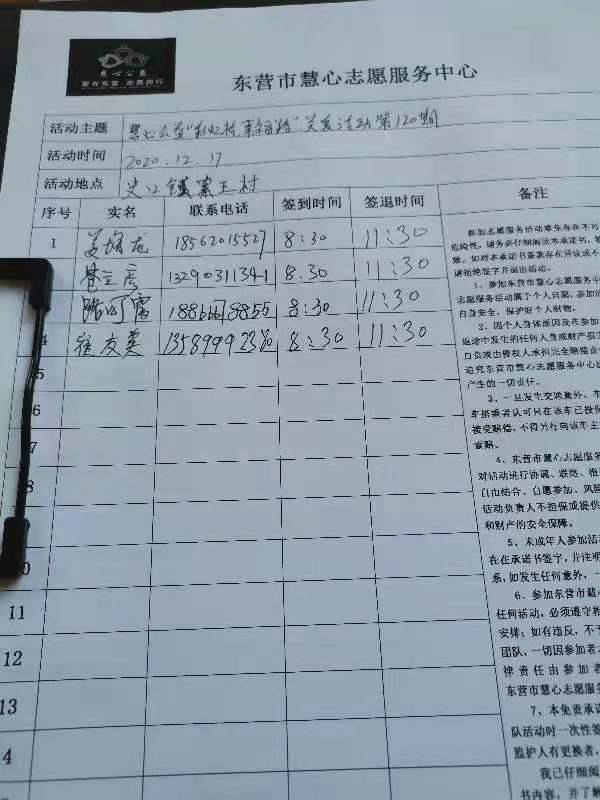 慧心公益
爱在东营·志愿同行
东营市慧心志愿服务中心
活动主题 慧心公益"彩虹桥 幸福路"关爱活动第120期
活动时间 2020.12.17
活动地点 史口镇 王村
序号 实名 联系电话 签到时间 签退时间 备注
1 姜 龙 18562015527 8:30 11:30
13290311341 8:30 11:30
8:30 11:30
4 崔友英 8:30 11:30
5
6
7
8
0
11
12
13
4
参加志愿服务活动难免存在不可
危险性,请务必仔细阅读本承诺书,签
效。如对本承诺书条款存在异议或不
请拒绝签字并退出活动。
1、参加东营市慧心志愿服务中
志愿服务活动属于个人自愿。参加活
自身安全,保护好个人财物。
2、因个人身体原因及在参加
返途中发生的任何人身或财产损害
自负或由侵权人承担完全赔偿责
追究东营市慧心志愿服务中心
产生的一切责任。
3、一旦发生交通意外、车
车搭乘者认可只在该车已投保
接受赔偿,不得另行向该车主
索赔。
4、东营市慧心志愿服务
对活动进行协调、联络、指
自由结合、自愿参加、风险
活动负责人不担保或提供
和财产的安全保障。
5、未成年人参加活动
在在承诺书签字,并注明
系,如发生任何意外,一
6、参加东营市慧心
任何活动,必须遵守相
安排;如有违反,不予
团队,一切因参加者
律责任由参加者
东营市慧心志愿服务
7、本免责承诺
队活动时一次性签
监护人有更换者,
我已仔细阅
书内容,并了解